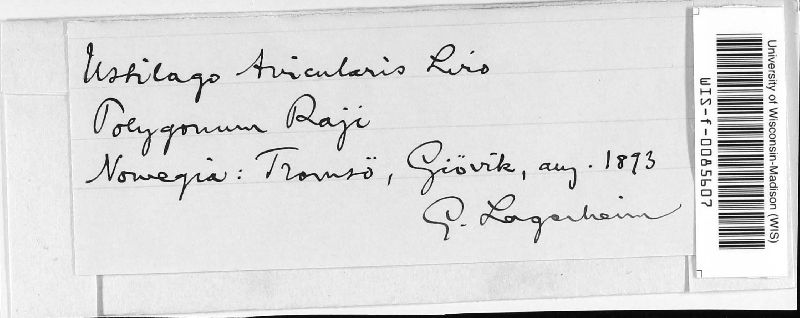 Ustilago Avicularis Liro
Polygonum Raji
Norvegia: Tromsö, Giövik, aug. 1893
G. Lagerheim
University of Wisconsin-Madison (WIS)
WIS-f-0085607